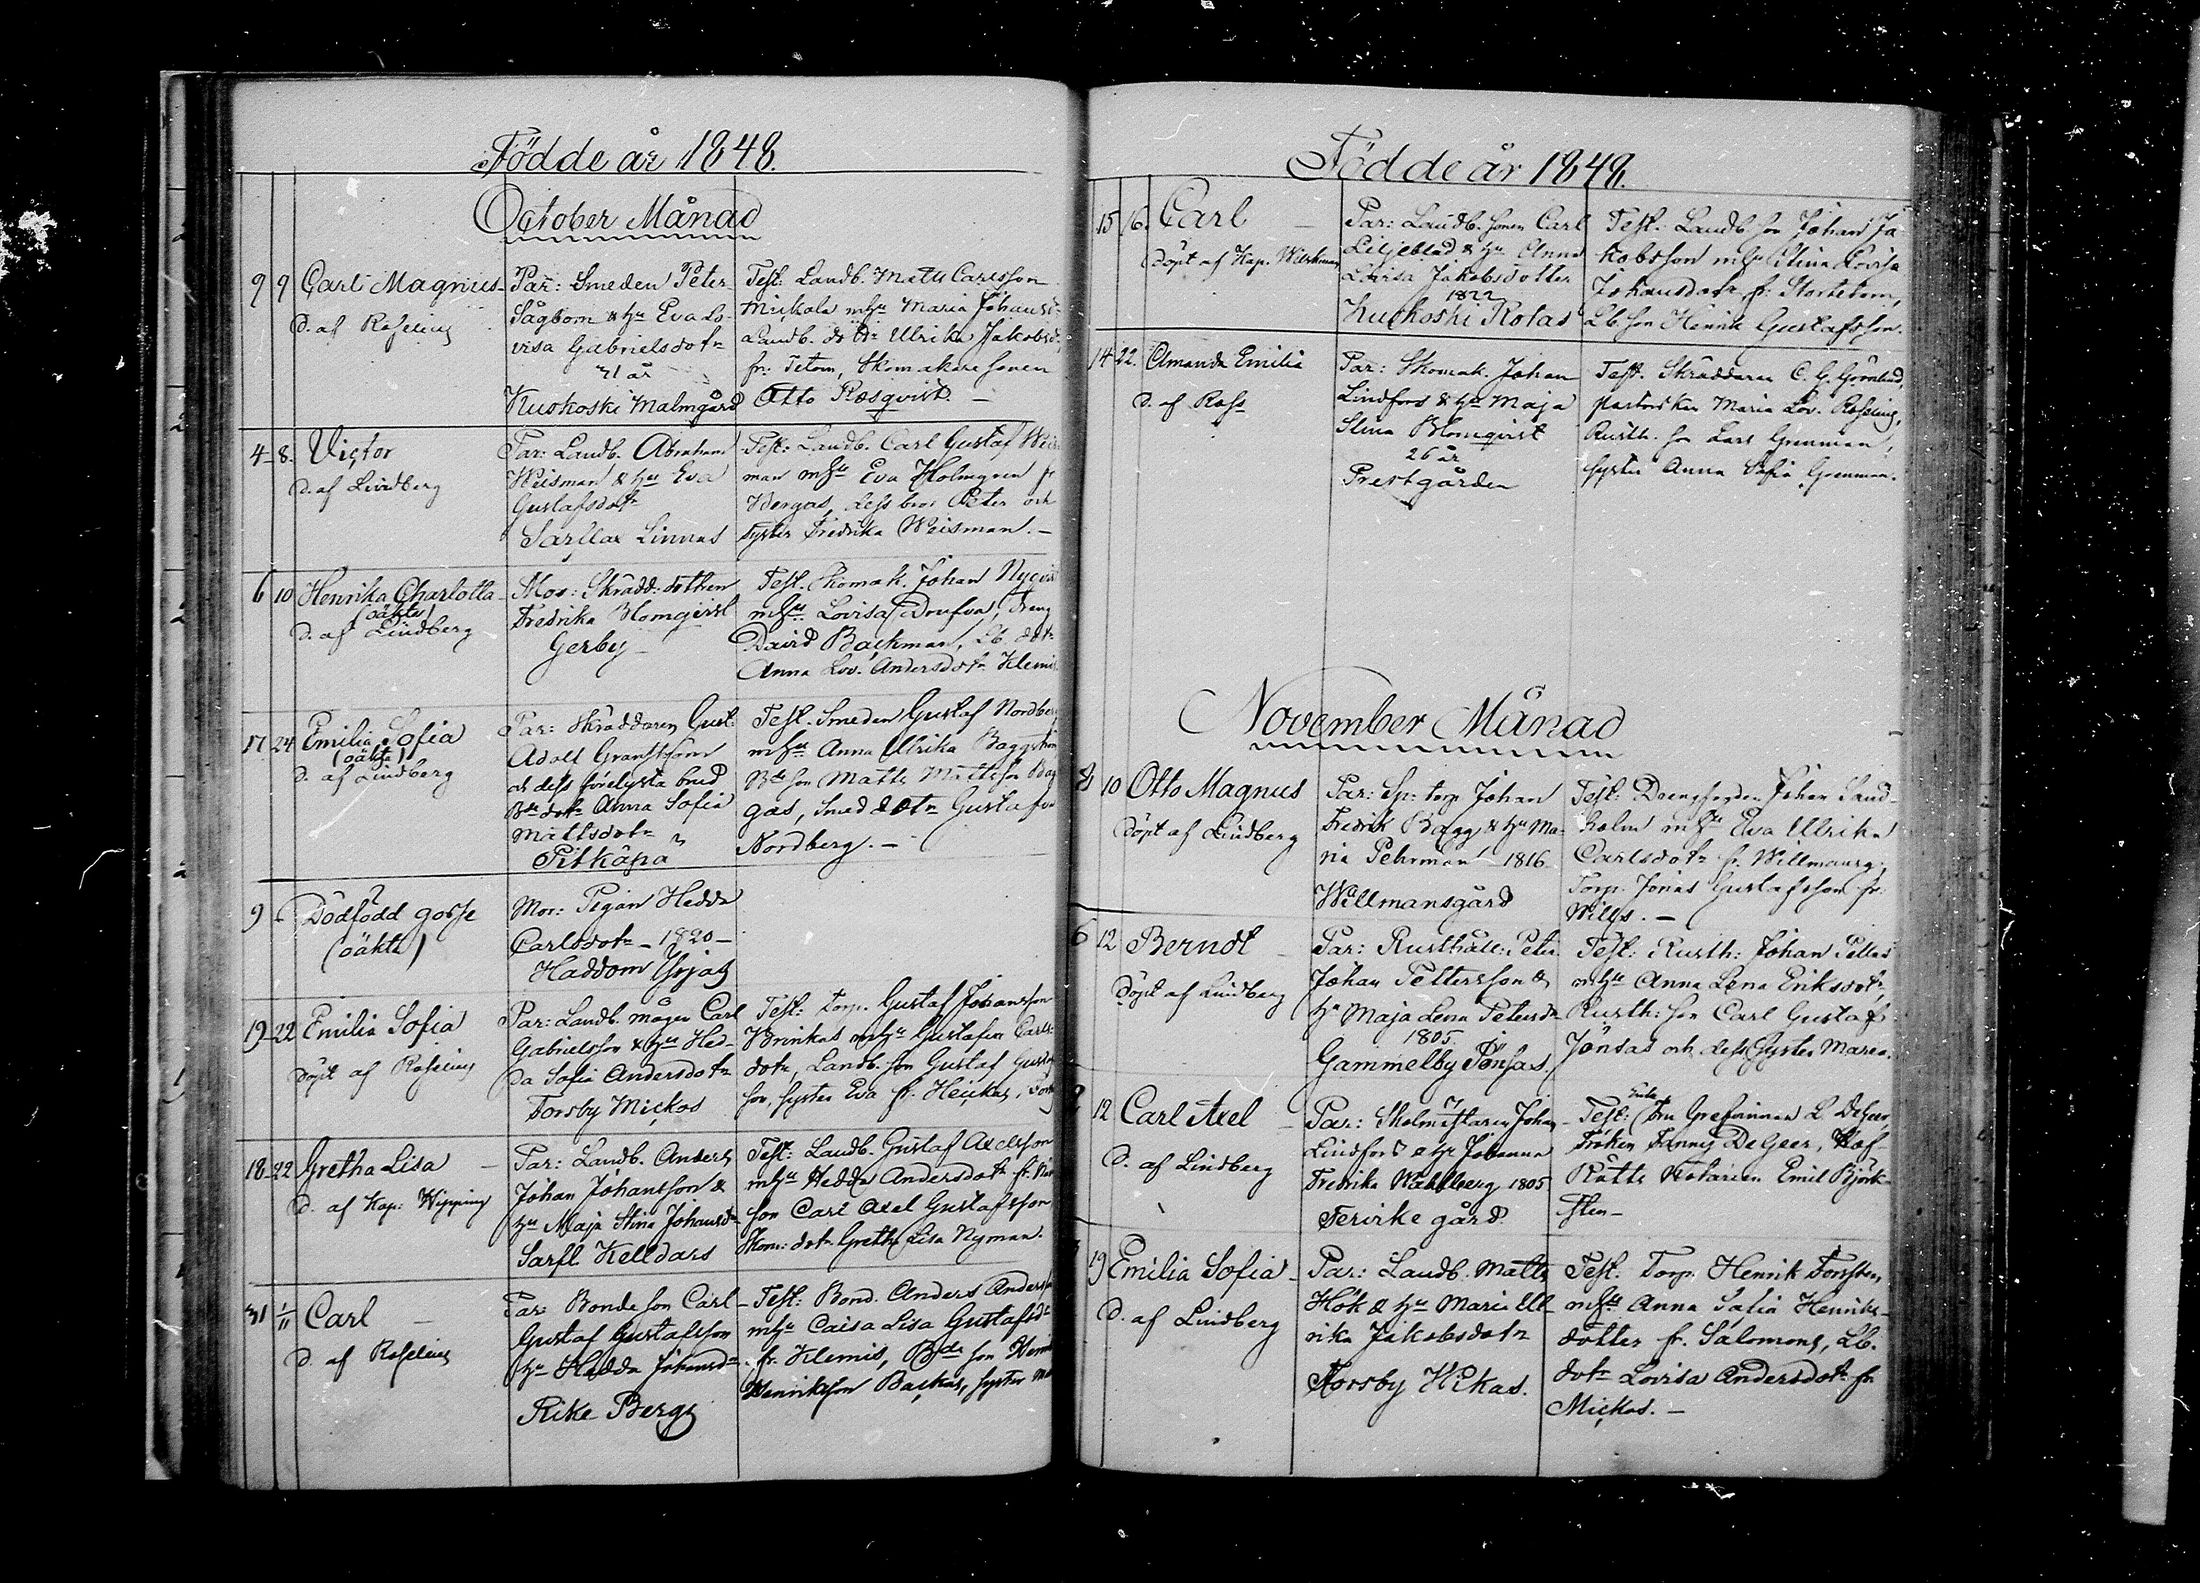 Födde år 1848.
October Månad
9 9 Carl Magnus
D. af Roseling
Par: Smeden Peter
Sågbom & hu Eva Lo-
visa Gabrielsdotr
31 år
Kuskoski Malmgård
Test: Landb. Matts Carlsson
Mickola mhu Maria Johansd:
Landb. dotr Ulrika Jakobsd:
fr. Tetom, Skomakare sonen
Otto Rosqvist. –
4 8. Victor
D. af Lindberg
Par: Landb. Abraham
Weisman & hu Eva
Gustafsdotr
Sarflax Linnas
Test: Landb. Carl Gustaf Weis
man mhu Eva Holmgren fr
Wergas, dess bror Peter och
syster Fredrika Weisman. –
6 10 Henrika Charlotta
(oäkta)
D. af Lindberg
Mor: Skrädd. dottren
Fredrika Blomqvist
Gerby
Test. Skomak. Johan Nyqvist
mhu Lovisa, dreng
David Backman, Lb. dotr
Anna Lov. Andersdotr Klemis
17 24 Emilia Sofia
(oäkta)
D. af Lindberg
Par: Skräddaren Gust.
Adolf Granström
och dess förelysta brud
Bde dotr Anna Sofia
Mattsdotr
Pitkäpä
Test. Smeden Gustaf Nordberg
mhu Anna Ulrika Baggström
Bde son Matts Mattsson Bag
gas, Smed dotr Gustafva
Nordberg. –
9 Dödfödd gosse
(oäkta)
Mor: Pigan Hedda
Carlsdotr – 1820 –
Haddom Yrjas
19 22 Emilia Sofia
Döpt af Roseling
Par: Landb. mågen Carl
Gabrielsson & hu Hed-
da Sofia Andersdotr
Forsby Mickos
Test: Torp. Gustaf Johansson
Brinkas mhu Gustafva Carls-
dotr, Landb. son Gustaf Gustafs
son, syster Eva fr. Heickas,
18 22 Gretha Lisa
D. af Kap: Wipping
Par: Landb. Anders
Johan Johansson &
hu Maja Stina Johansdr
Sarfl. Kelldars
Test: Landb. Gustaf Axelsson
mhu Hedda Andersdotr fr.
son Carl Axel Gustafsson
Skom: dotr Gretha Lisa Nyman.
31 1/11 Carl
D. af Roseling
Par: Bonde son Carl
Gustaf Gustafsson
hu Hedda Johansdr
Rike Bergs
Test: Bond. Anders Anders
mhu Caisa Lisa Gustafsdr
fr. Klemis, Bde son
Henriksson Backas, syster
Födde år 1848.
15 16. Carl
Döpt af Kap. Wirkman
Par: Landb. sonen Carl
Liljeblad & hu Anna
Lovisa Jakobsdotter
1822
Kuskoski Rotas
Test. Landb. son Johan Ja
kobsson mhu Stina Lovisa
Johansdotr fr. Stortetom,
Lb. son Henrik Gustafsson.
14 22. Amanda Emilia
D. af Ross
Par: Skomak. Johan
Lindfors & hu Maja
Stina Blomqvist
26 år
Prestgården
Test. Skräddaren C. G. Grönlund,
Maria Lov. Roseling,
Rusth. son Lars Grenman,
syster Anna Sofia Grenman.
November Månad
8 10 Otto Magnus
Döpt af Lindberg
Par: Sp: torp. Johan
Fredrik Bagg & hu Ma-
ria Pehrman 1816
Willmansgård
Test: Drengfogden Johan Sand-
holm mhu Eva Ulrika
Carlsdotr fr. Willmansg.,
Torp. Jonas Gustafsson fr.
Wills. –
6 12 Berndt
Döpt af Lindberg
Par: Rusthåll: Peter
Johan Pettersson &
hu Maja Lena Petersdr
1805.
Gammelby Jönsas.
Test: Rusth: Johan Pellas
mhu Anna Lena Eriksdotr,
Rusth: son Carl Gustaf
Jönsas och dess syster Maria.
12 Carl Axel
D. af Lindberg
Par: Skolmästaren Johan
Lindfors & hu Johanna
Fredrika Wahlberg 1805
Tervike gård
Test: Enke
Grefvinnan L. DeGeer,
Fröken Fanny DeGeer, Hof-
Rätts Notarien Emil Björk-
sten –
19 Emilia Sofia
D. af Lindberg
Par: Landb. Matts
Hök & hu Maria Ul-
rika Jakobsdotr
Forsby Hikas.
Test. Torp. Henrik Forsten,
mhu Anna Sofia Henriks-
dotter fr. Salomons, Lb.
dotr Lovisa Andersdotr fr.
Mickos. –